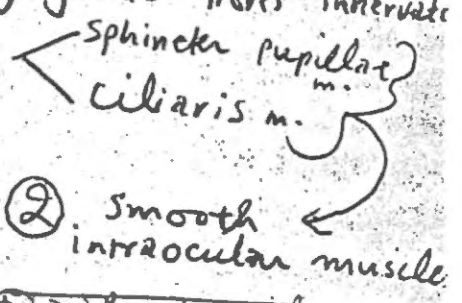 innervate
sphincter pupillae
m.
ciliaris m.
② Smooth
intraocular muscle